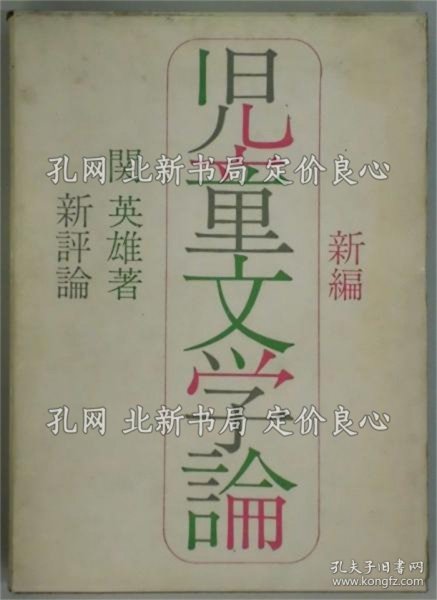 新編
児童文学論
関 英雄著
新評論
孔网 北新书局 定价良心
孔网 北新书局 定价良心
孔夫子旧书网
book.kongfz.com